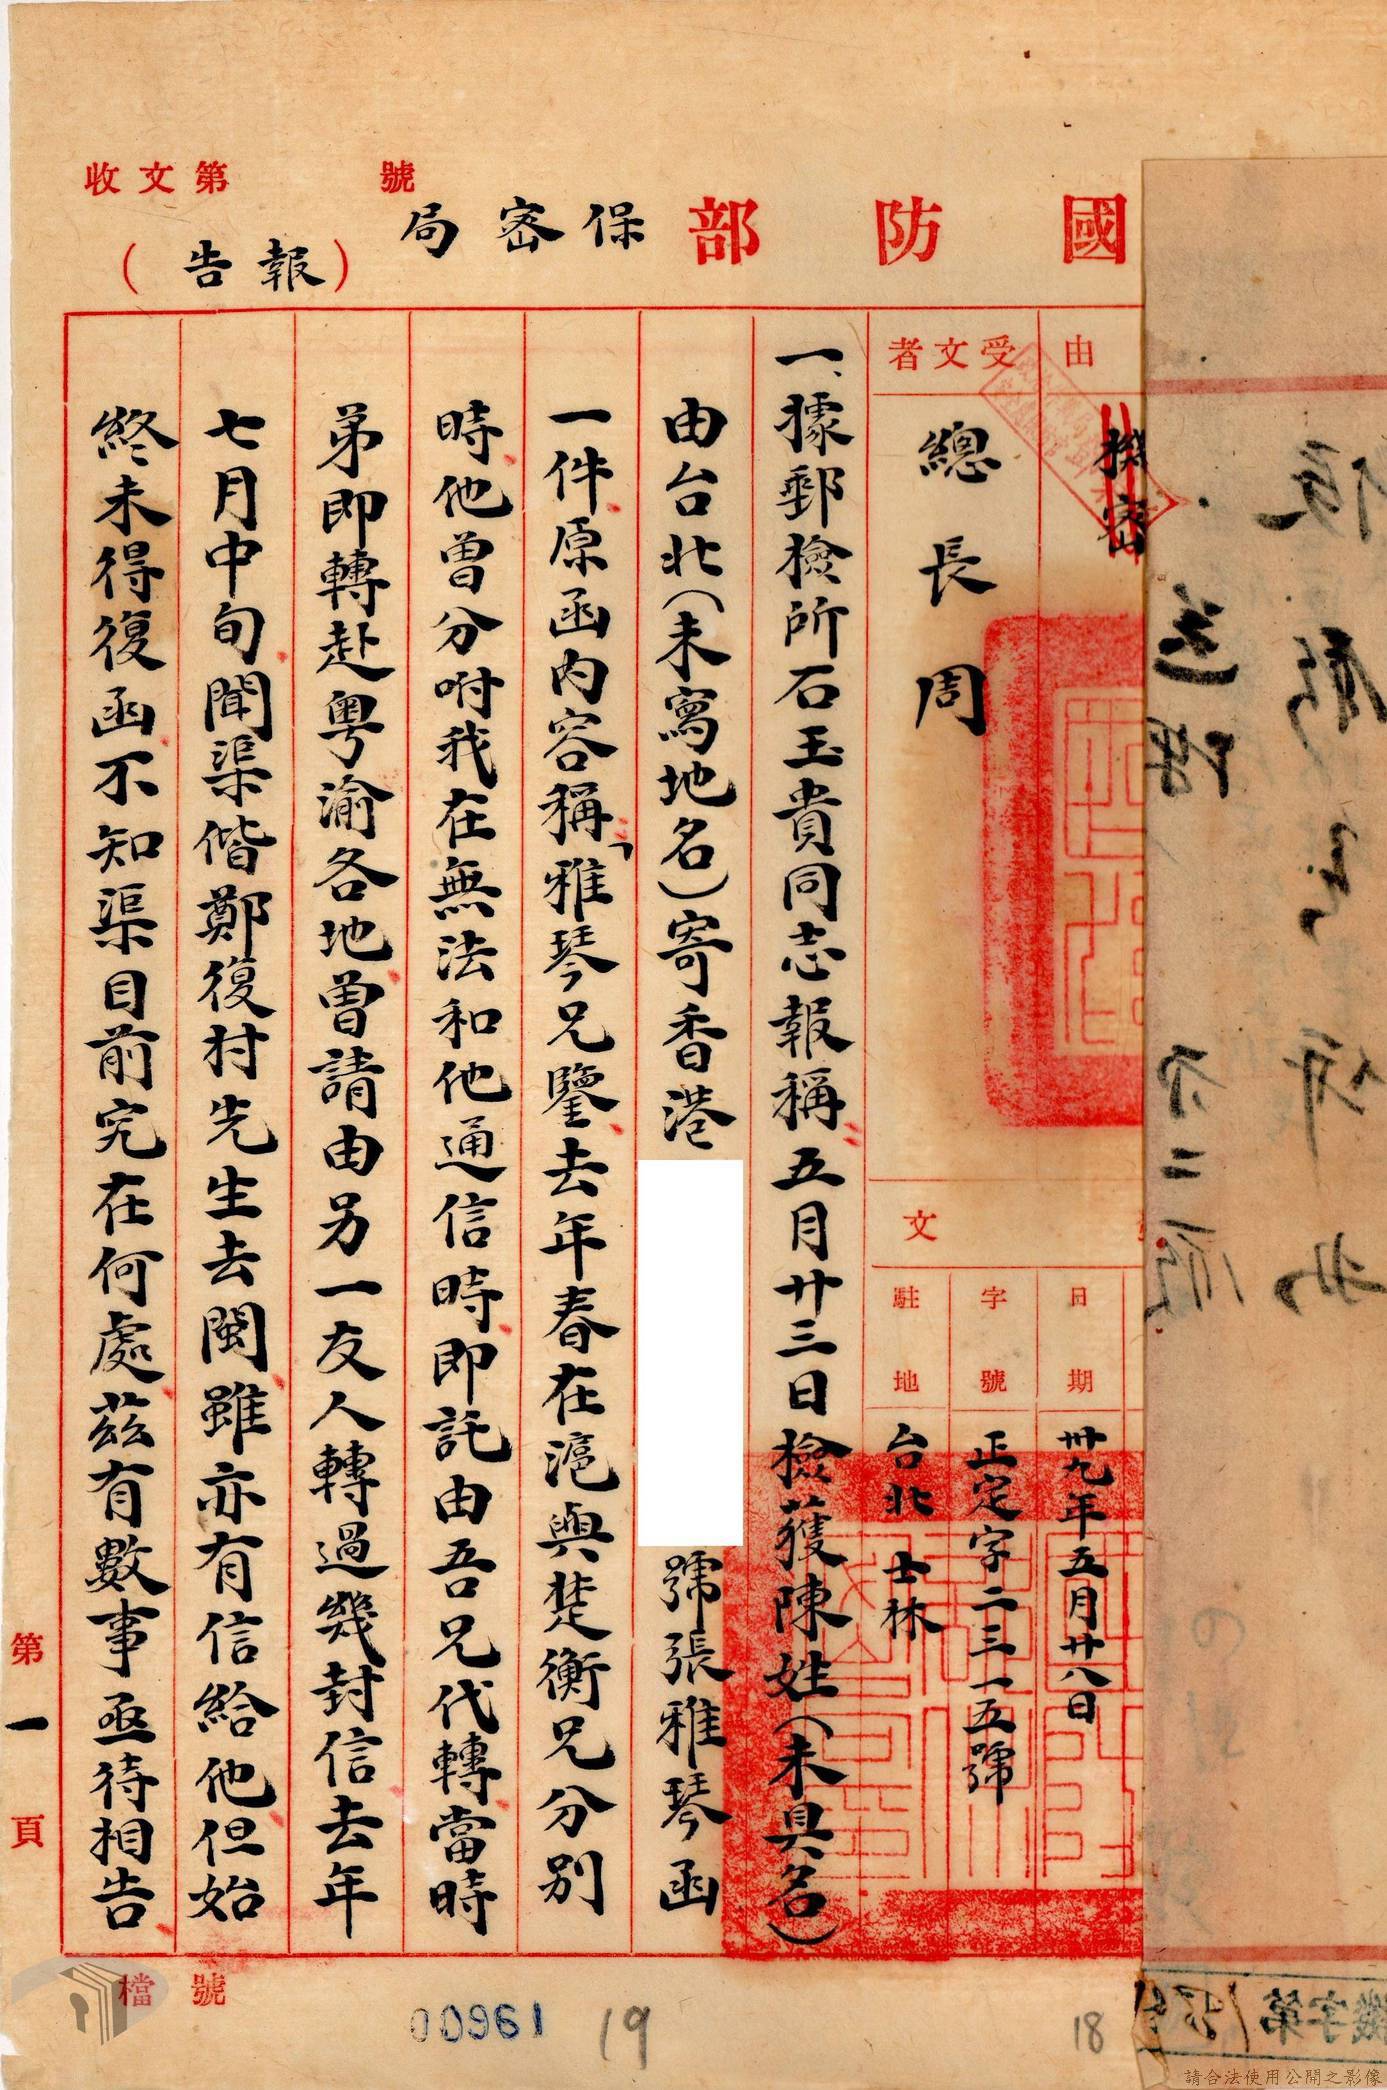 國防部保密局
(報告)
收文第 號
由
機密
受文者
總長周
文
日期
卅九年五月廿八日
字號
正定字二三一五號
駐地
台北士林
一、據郵檢所石玉貴同志報稱五月廿三日檢獲陳姓(未具名)
由台北(未寫地名)寄香港 號張雅琴函
一件原函內容稱「雅琴兄鑒去年春在滬與楚衡兄分別
時他曾分咐我在無法和他通信時即託由吾兄代轉當時
弟即轉赴粵渝各地曾請由另一友人轉過幾封信去年
七月中旬聞渠偕鄭復村先生去閩雖亦有信給他但始
終未得復函不知渠目前究在何處茲有數事亟待相告
第一頁
檔號
00961
19
18
機字第
請合法使用公開之影像